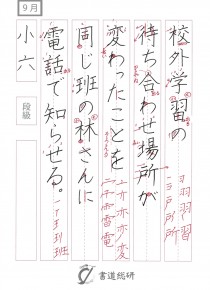 9月
校外学習の
待ち合わせ場所が
変わったことを
同じ班の林さんに
電話で知らせる。
小六
段級
書道総研